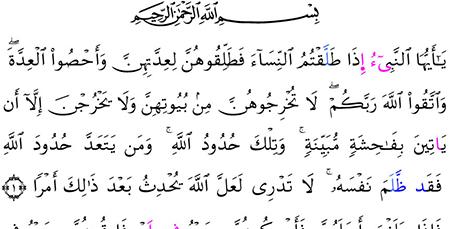 بِسْمِ اللَّهِ الرَّحْمَٰنِ الرَّحِيمِ
يَـٰٓأَيُّهَا النَّبِىٓءُ إِذَا طَلَّقْتُمُ النِّسَآءَ فَطَلِّقُوهُنَّ لِعِدَّتِهِنَّ وَأَحْصُوا۟ الْعِدَّةَ ۖ
وَاتَّقُوا۟ اللَّهَ رَبَّكُمْ ۖ لَا تُخْرِجُوهُنَّ مِنۢ بُيُوتِهِنَّ وَلَا يَخْرُجْنَ إِلَّآ أَن
يَاتِينَ بِفَـٰحِشَةٍ مُّبَيِّنَةٍ ۚ وَتِلْكَ حُدُودُ اللَّهِ ۚ وَمَن يَتَعَدَّ حُدُودَ اللَّهِ
فَقَد ظَّلَمَ نَفْسَهُۥ ۚ لَا تَدْرِى لَعَلَّ اللَّهَ يُحْدِثُ بَعْدَ ذَٰلِكَ أَمْرًا ﴿١﴾